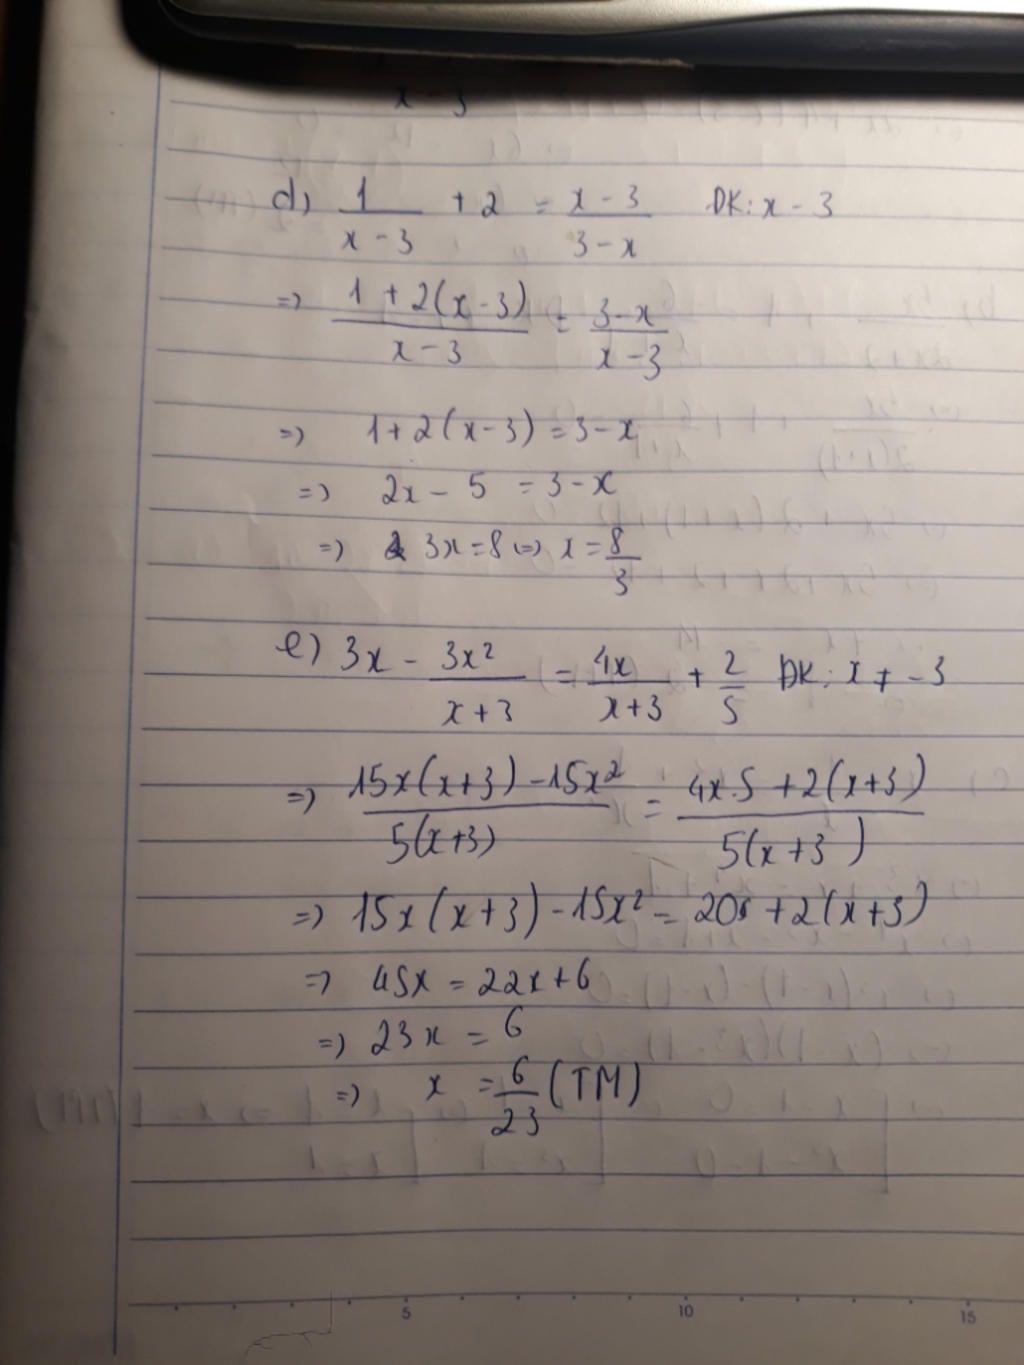 x - 3
d) 1/(x - 3) + 2 = (x - 3)/(3 - x) ĐK: x - 3
=> (1 + 2(x - 3))/(x - 3) = (3 - x)/(x - 3)
=> 1 + 2(x - 3) = 3 - x
=> 2x - 5 = 3 - x
=> 3x = 8 => x = 8/3
e) 3x - 3x²/(x + 3) = 4x/(x + 3) + 2/5 ĐK: x ≠ - 3
=> (15x(x + 3) - 15x²)/(5(x + 3)) = (4x.5 + 2(x + 3))/(5(x + 3))
=> 15x(x + 3) - 15x² = 20x + 2(x + 3)
=> 45x = 22x + 6
=> 23x = 6
=> x = 6/23 (TM)
5 10 15